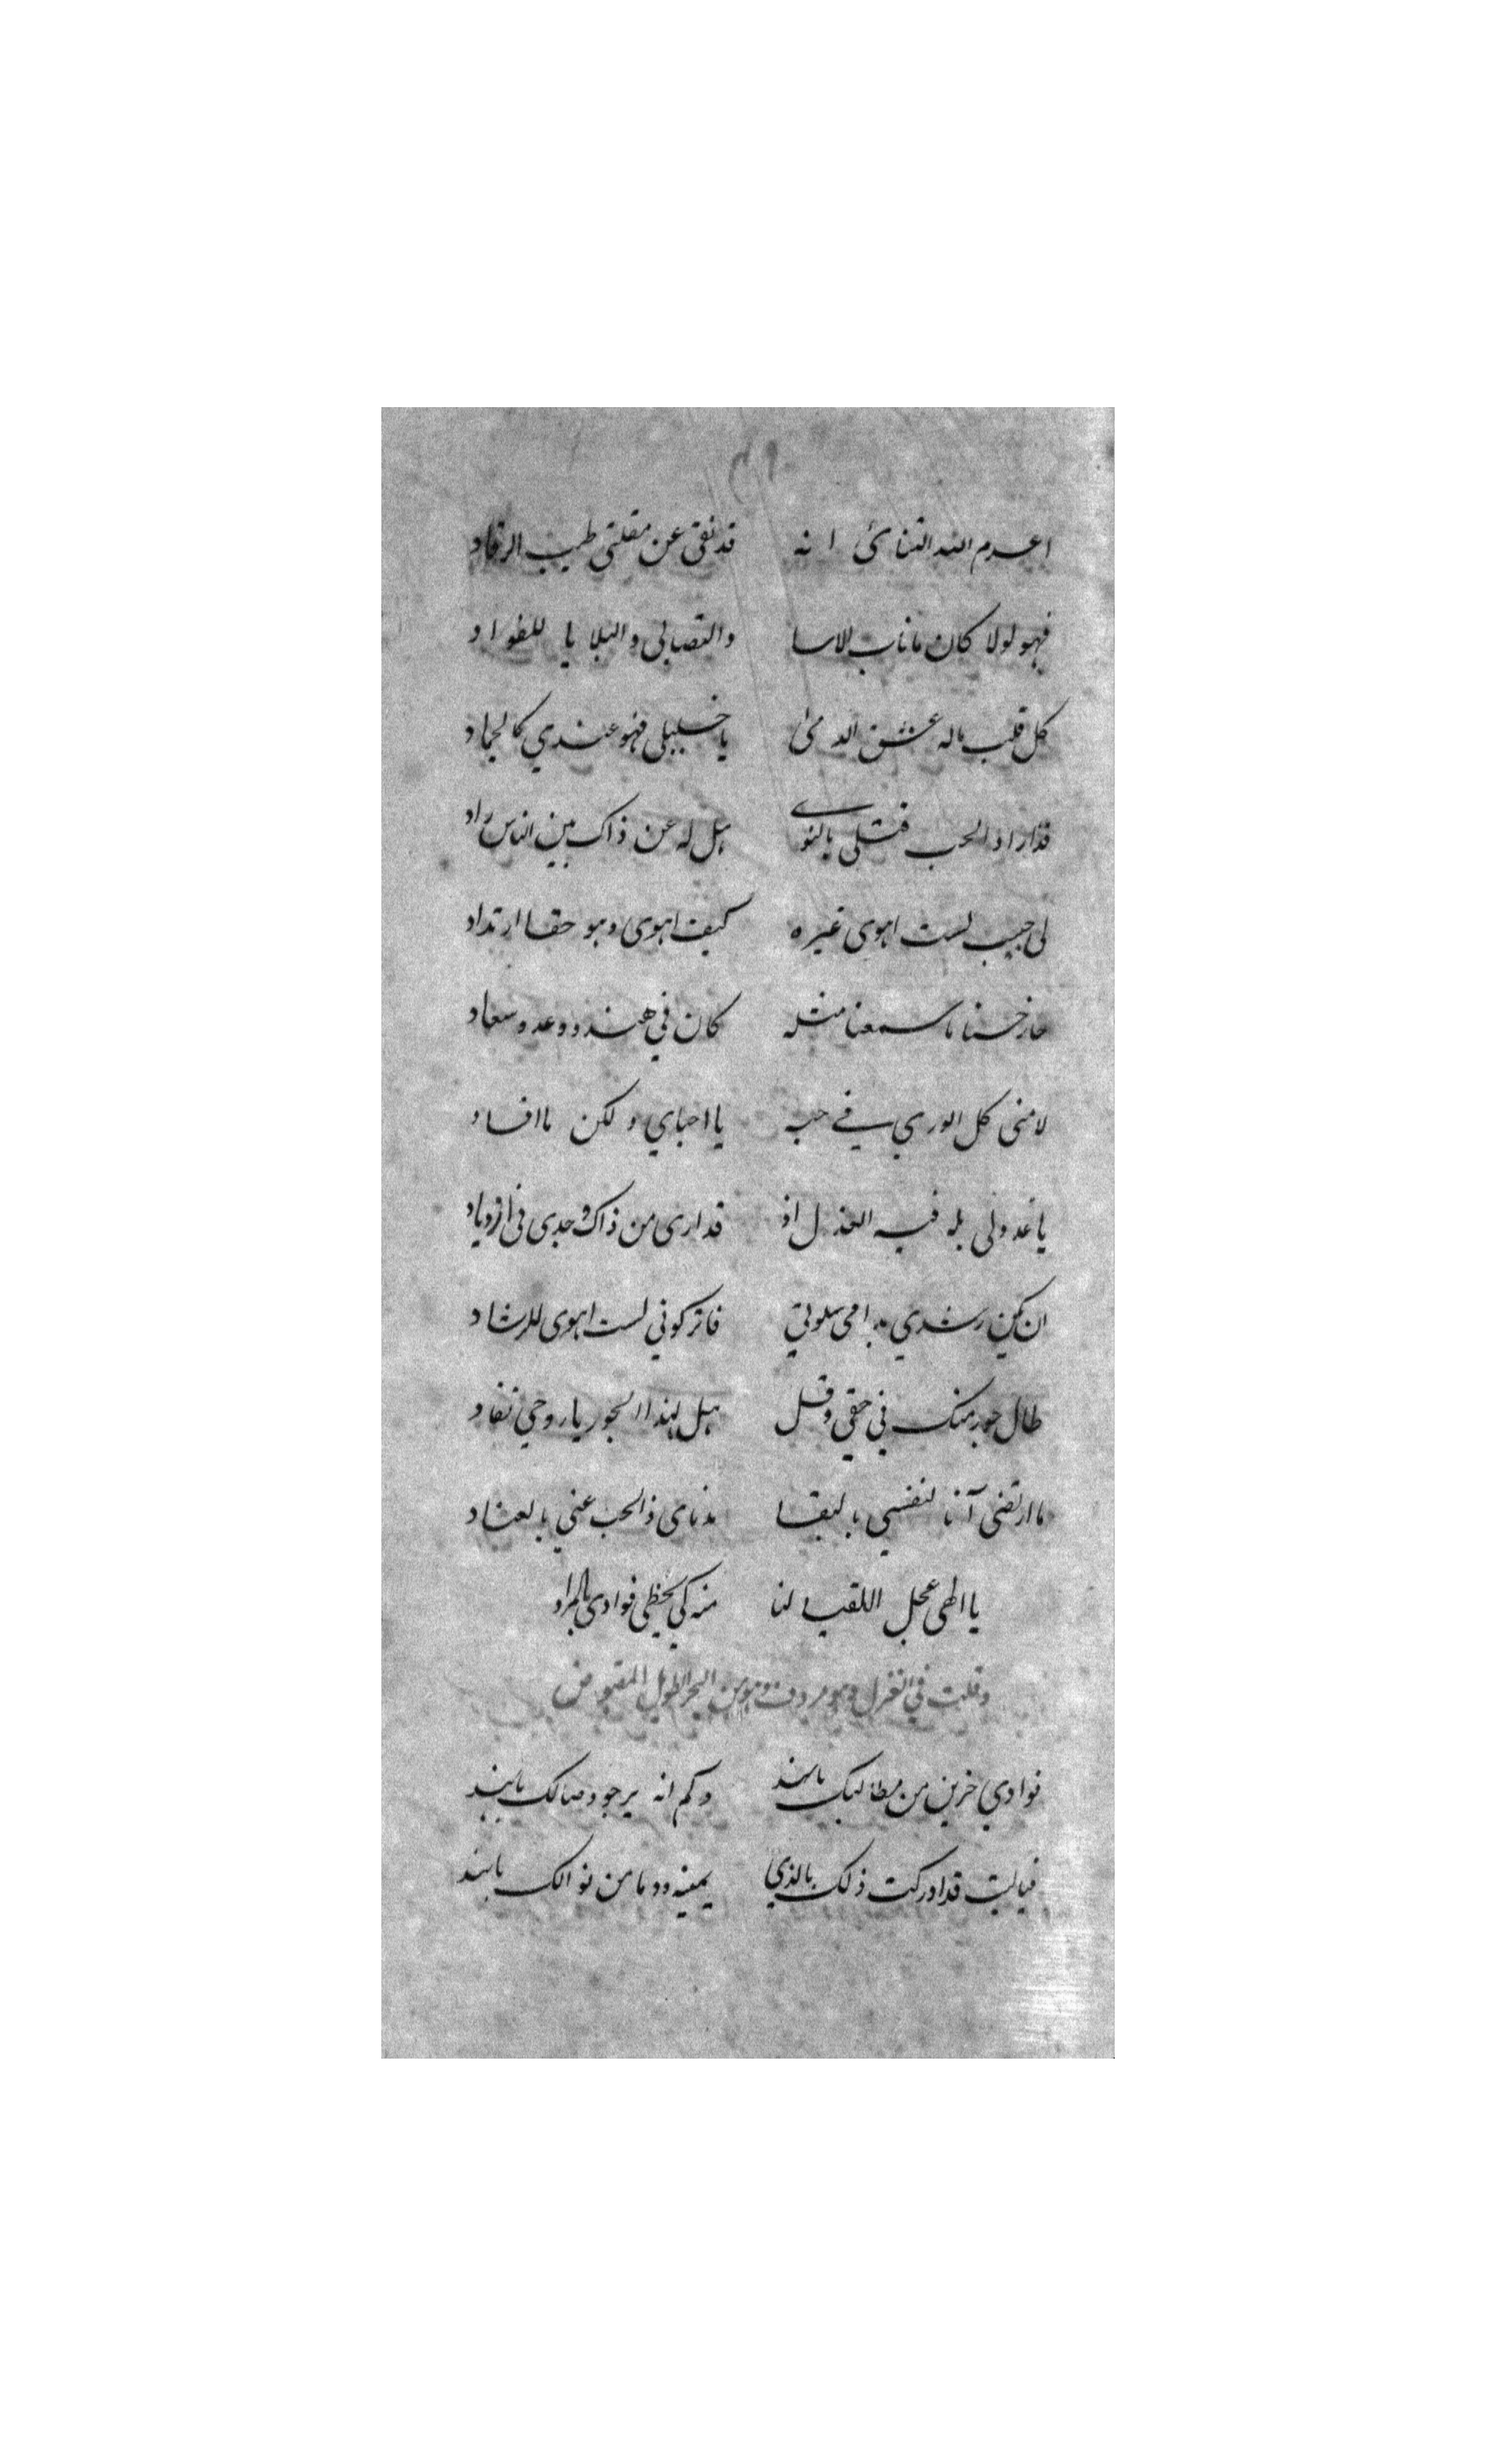 ٤٩
اعدم الله التنائ انه قد نفى عن مقلتي طيب الرقاد
فهو لولا كان ما ناب الاسا والتصابى والبلا يا للفواد
كل قلب ماله عشق الدمى يا خليلى فهو عندي كالجماد
قد اراد الحب قتلى بالنوى هل له عن ذاك بين الناس راد
لى حبيب لست اهوى غيره كيف اهوى وهو حقا ارتداد
حاز حسنا ما سمعنا مثله كان في هند ودعد وسعاد
لامنى كل الورى في حبه يا احباي ولكن ما افاد
يا عذولى بله فيه العذل اذ قد ارى من ذاك وجدى فى ازدياد
ان يكن رشدي مرامى سلوتي فاتركوني لست اهوى للرشاد
طال جور منك في حقي وقل هل لهذا الجور يا روحي نفاد
ما ارتضى آنا لنفسي بالبقا مذ نأى ذا الحب عني بالعناد
يا الهى عجل اللقيا لنا منه كي يحظى فوادى بالمراد
وقلت في الغزل وهو مردوف وهو من البحر الطويل المقبوض
فوادي حزين من مطالبك بالهند وكم انه يرجو وصالك بالهند
فياليت قد ادركت ذلك بالذي يمينه وما من نوالك بالهند